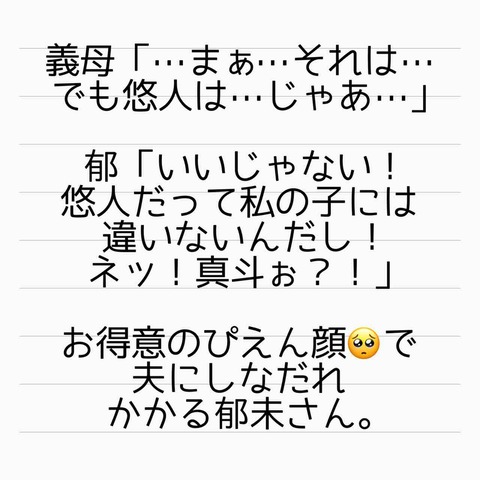 義母「…まぁ…それは…
でも悠人は…じゃあ…」
郁「いいじゃない！
悠人だって私の子には
違いないんだし！
ネッ！真斗ぉ？！」
お得意のぴえん顔🥺で
夫にしなだれ
かかる郁未さん。